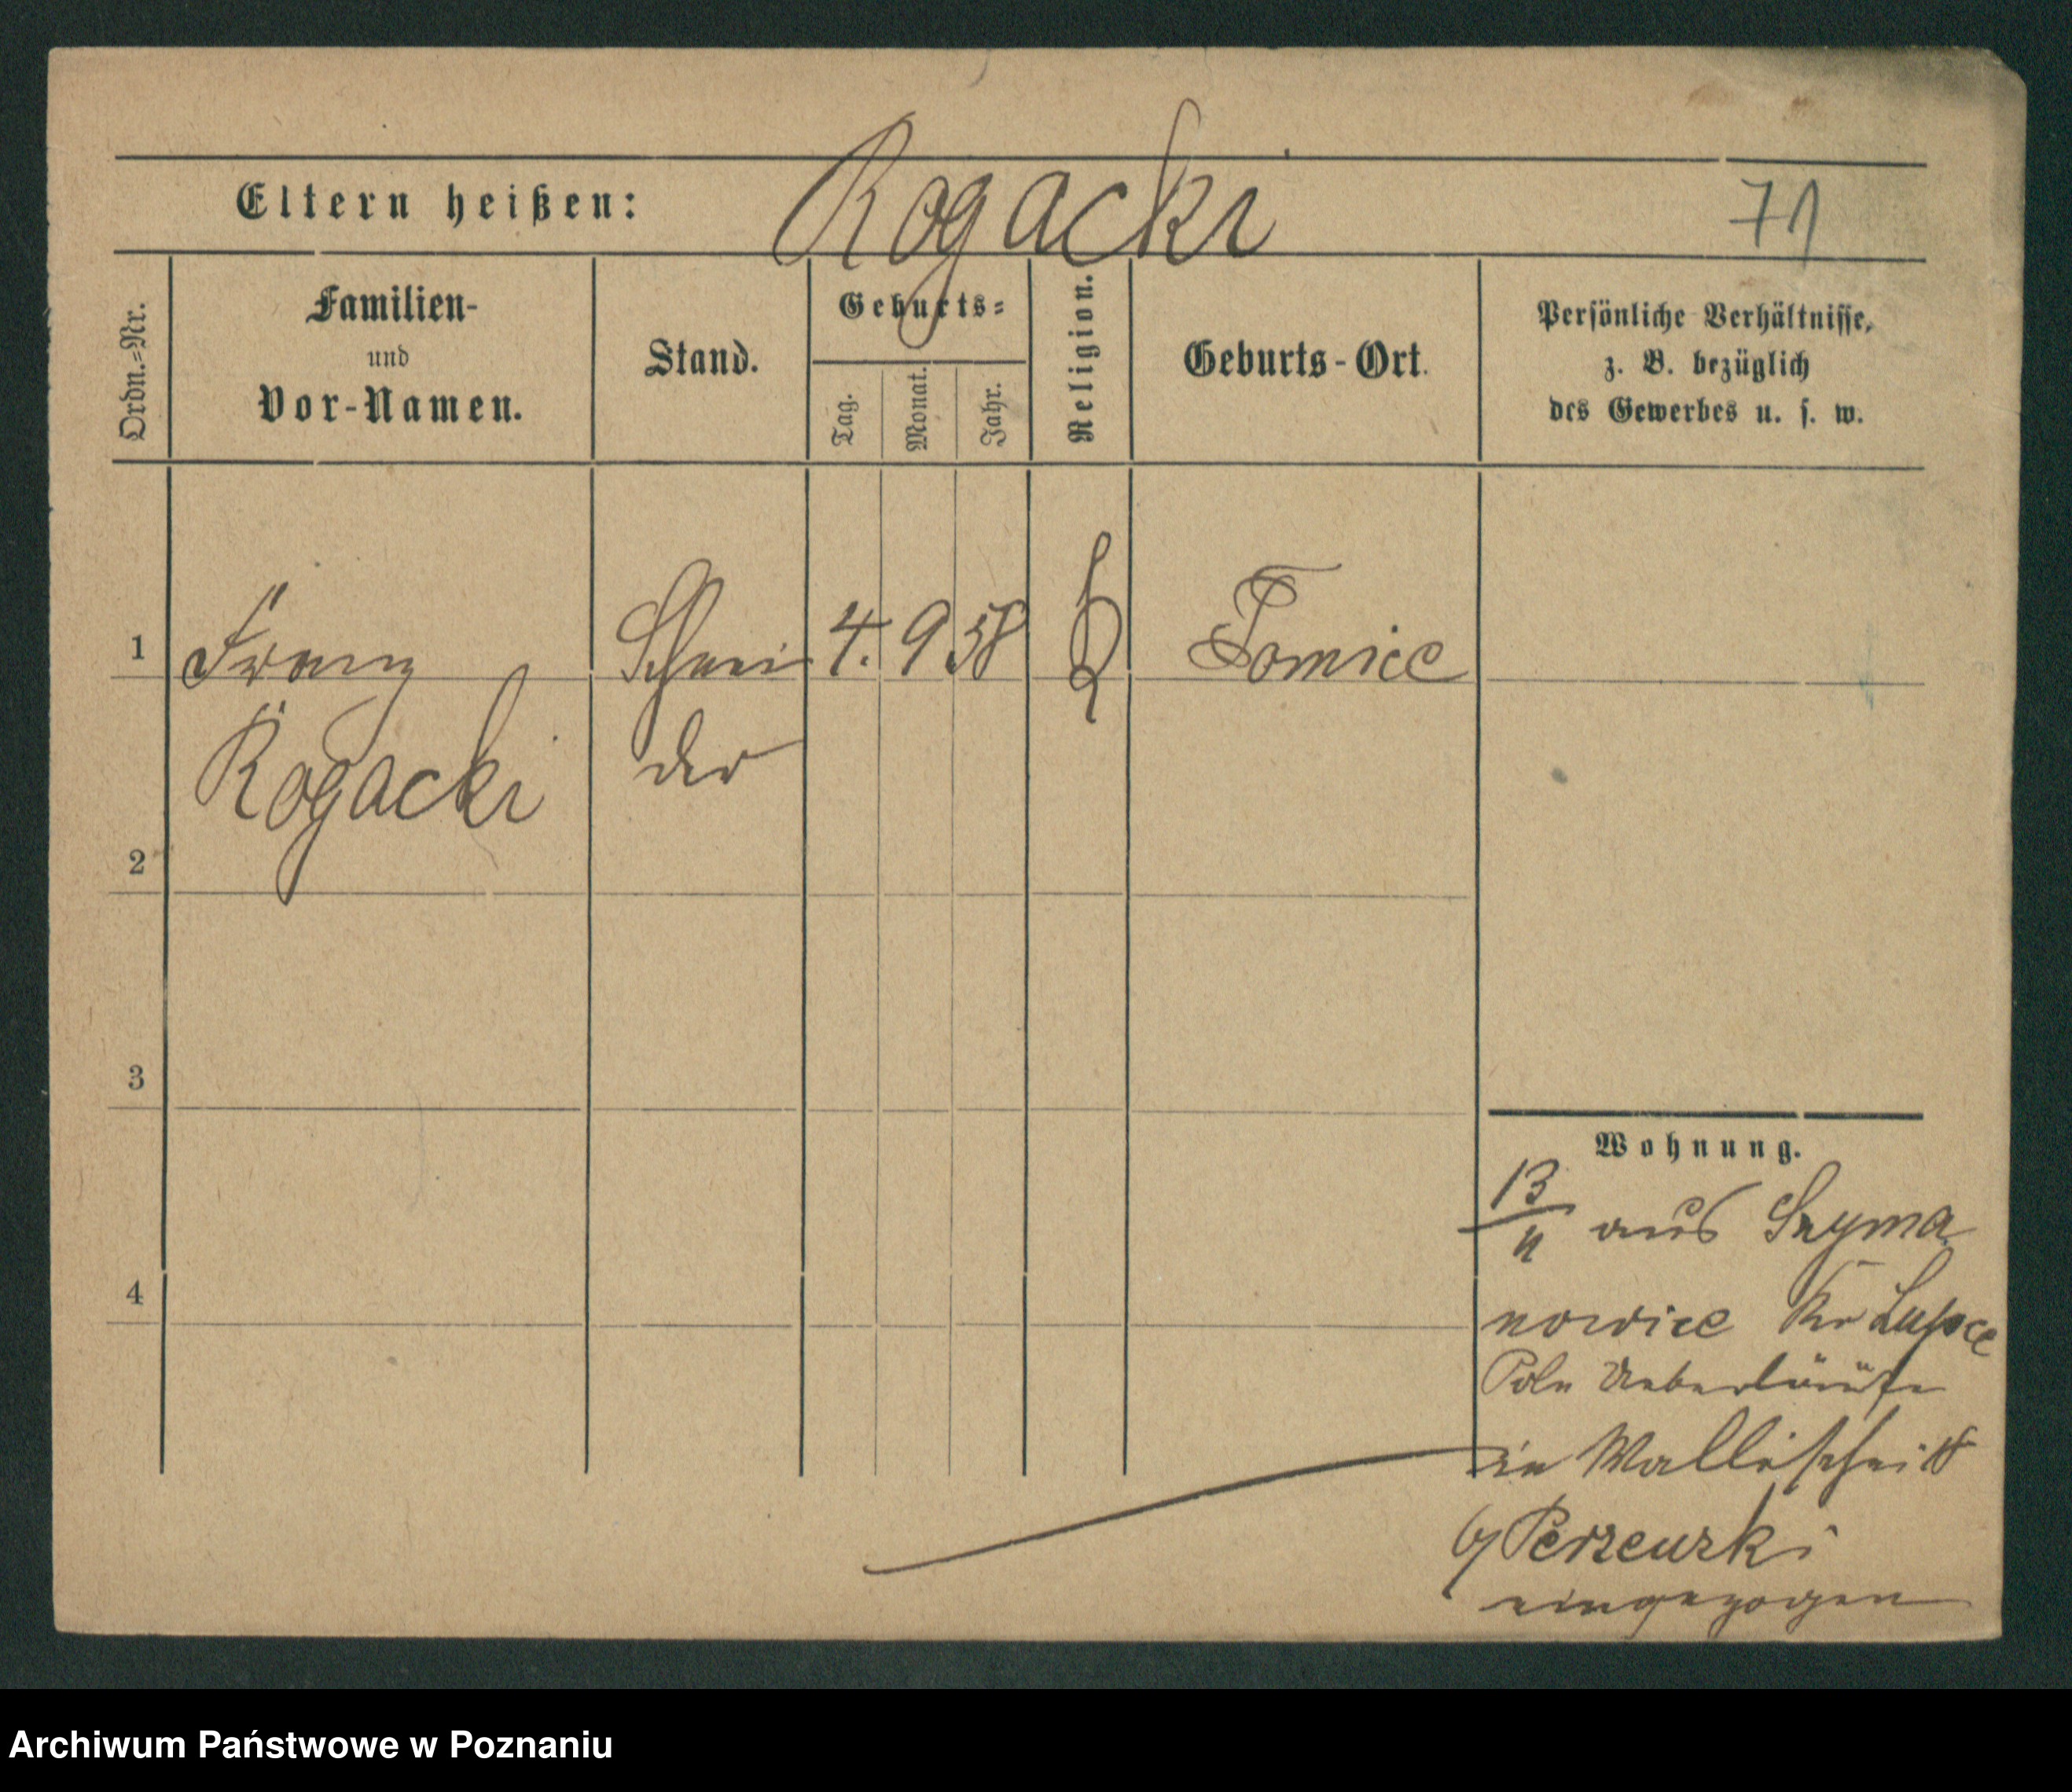 Eltern heißen: Rogacki 71
Ordn.=Nr.
Familien-
und
Vor-Namen.
Stand.
Geburts=
Tag.
Monat.
Jahr.
Religion.
Geburts-Ort.
Persönliche Verhältnisse,
z. B. bezüglich
des Gewerbes u. s. w.
1 Franz Schnei 4. 9 58 Tomice
Rogacki der
2
3
4
Wohnung.
13/4 aus Szyma
nowice Kr
Poln Ueberläufer
in Wallischei
eingezogen
Archiwum Państwowe w Poznaniu